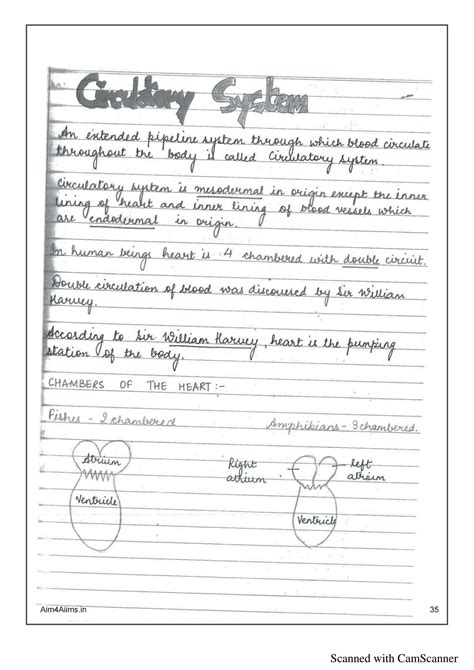 Circulatory System
An extended pipeline system through which blood circulate
throughout the body is called Circulatory System.
Circulatory system is mesodermal in origin except the inner
lining of heart and inner lining of blood vessels which
are endodermal in origin.
In human beings heart is 4 chambered with double circuit.
Double circulation of blood was discovered by Sir William
Harvey.
According to Sir William Harvey, heart is the pumping
station of the body.
CHAMBERS OF THE HEART:-
Fishes - 2 chambered
Amphibians - 3 chambered.
Atrium
Ventricle
Right
atrium
left
atrium
Ventricle
Aim4Aiims.in
35
Scanned with CamScanner